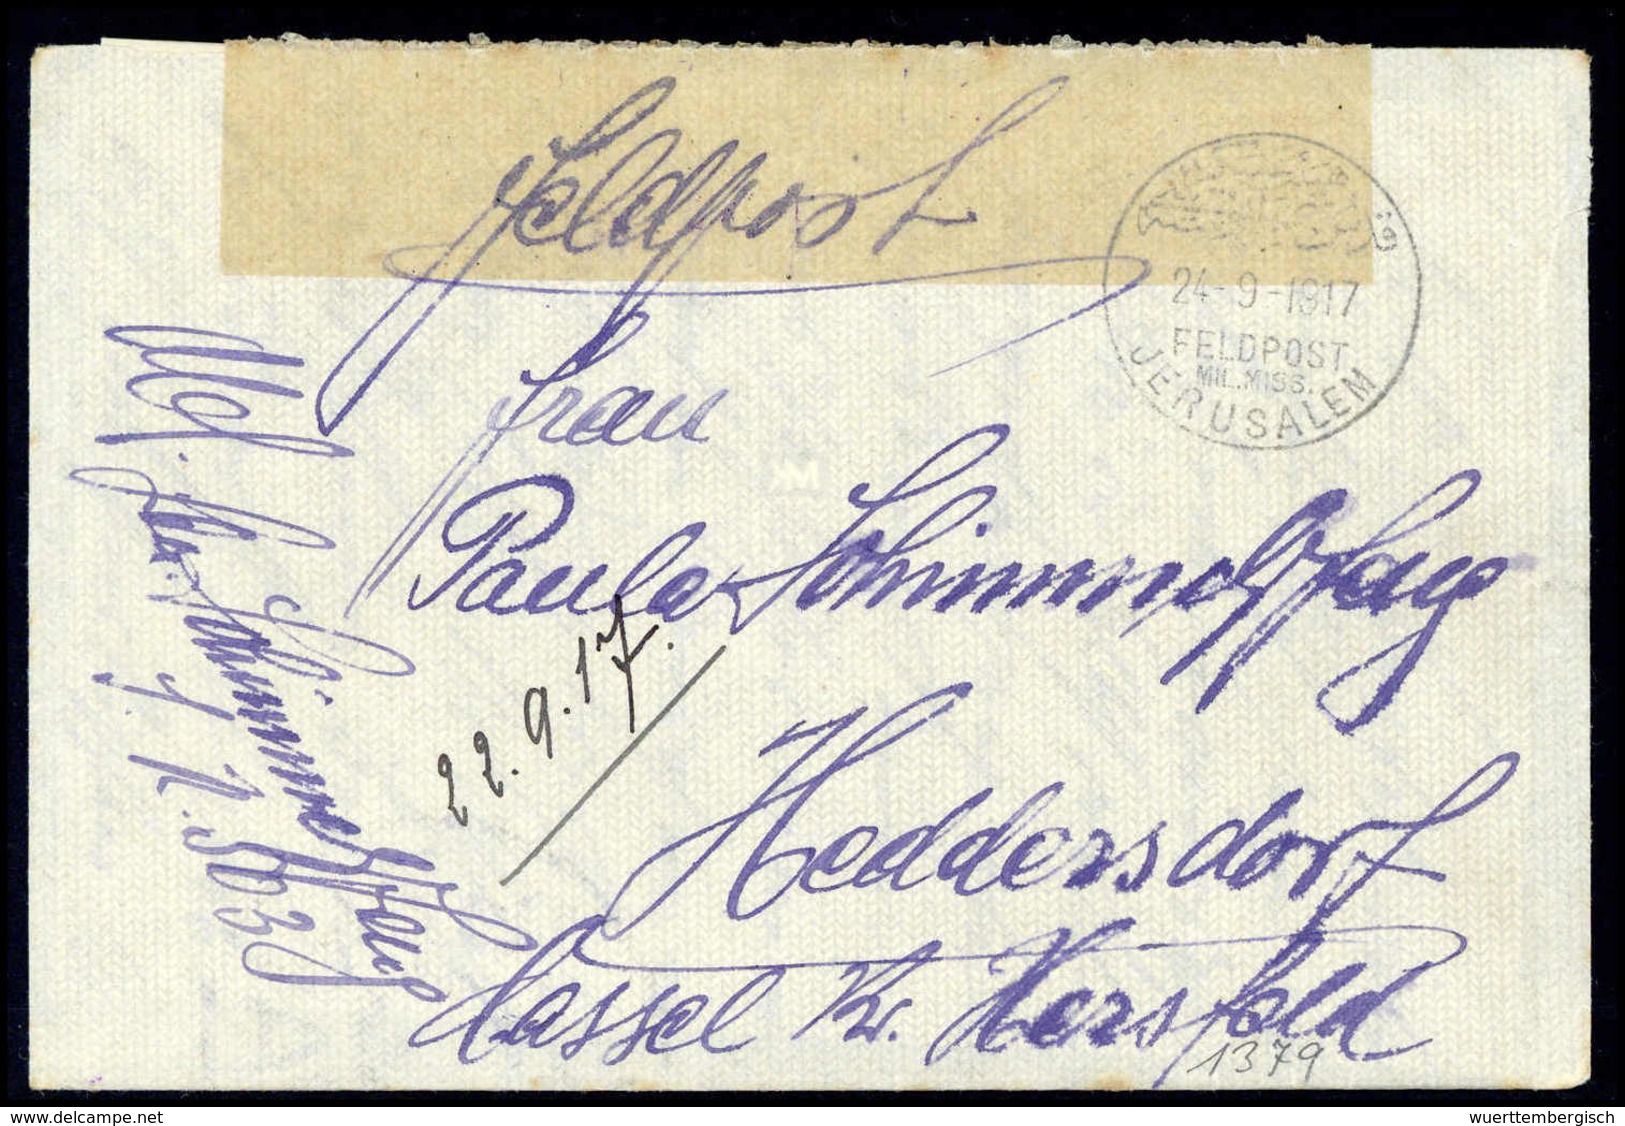 Feldpost
24-9-1917
FELDPOST
MIL.MISS.
JERUSALEM
Frau
Paula Schimmelpfeng
22.9.17.
Heddersdorf
Cassel Kr. Hersfeld
1379
Schimmelpfeng
My-delcampe.net
wuerttembergisch